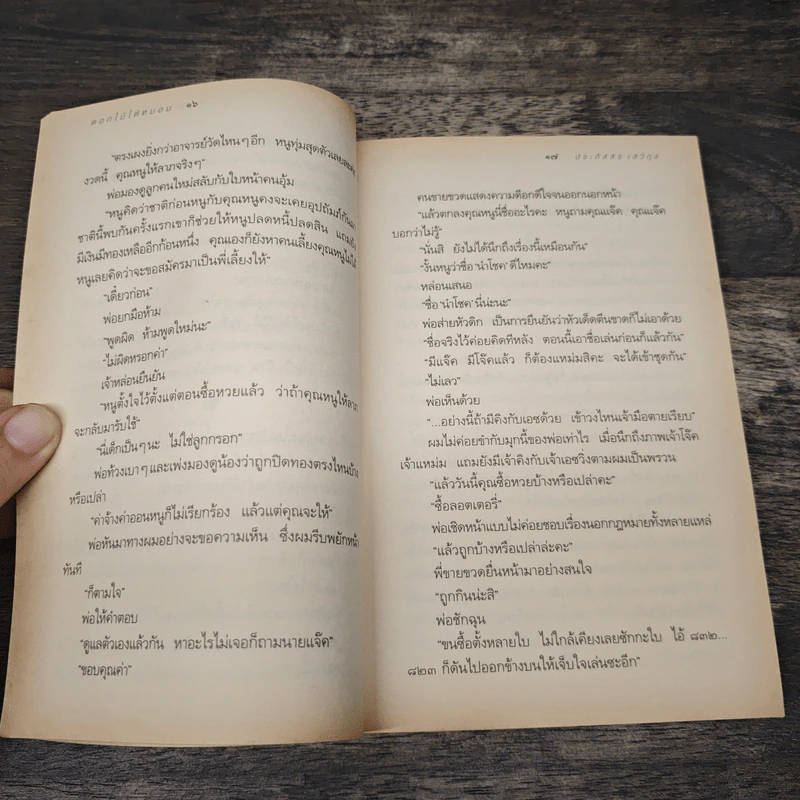 ดอกไม้ใต้หมอน ๑๖
"ตรงเผงยิ่งกว่าอาจารย์วัดไหนๆ อีก หนูทุ่มสุดตัวเลยละค่ะ
งวดนี้ คุณหนูให้ลาภจริงๆ"
พ่อมองดูลูกคนใหม่สลับกับใบหน้าคนอุ้ม
"หนูคิดว่าชาติก่อนหนูกับคุณหนูคงจะเคยอุปถัมภ์กันมา
ชาตินี้พบกันครั้งแรกเขาก็ช่วยให้หนูปลดหนี้ปลดสิน แถมยัง
มีเงินมีทองเหลืออีกก้อนหนึ่ง คุณเองก็ยังหาคนเลี้ยงคุณหนูไม่ได้
หนูเลยคิดว่าจะขอสมัครมาเป็นพี่เลี้ยงให้"
"เดี๋ยวก่อน"
พ่อยกมือห้าม
"พูดผิด ห้ามพูดใหม่นะ"
"ไม่ผิดหรอกค่า"
เจ้าหล่อนยืนยัน
"หนูตั้งใจไว้ตั้งแต่ตอนซื้อหวยแล้ว ว่าถ้าคุณหนูให้ลาภ
จะกลับมารับใช้"
"นี่เด็กเป็นๆ นะ ไม่ใช่ลูกกรอก"
พ่อท้วงเบาๆ และเพ่งมองดูน้องว่าถูกปิดทองตรงไหนบ้าง
หรือเปล่า
"ค่าจ้างค่าออนหนูก็ไม่เรียกร้อง แล้วแต่คุณจะให้"
พ่อหันมาทางผมอย่างจะขอความเห็น ซึ่งผมรีบพยักหน้า
ทันที
"ก็ตามใจ"
พ่อให้คำตอบ
"ดูแลตัวเองแล้วกัน หาอะไรไม่เจอก็ถามนายแจ๊ค"
"ขอบคุณค่า"
๑๗ ประภัสสร เสวิกุล
คนขายขวดแสดงความดีอกดีใจจนออกนอกหน้า
"แล้วตกลงคุณหนูนี่ชื่ออะไรคะ หนูถามคุณแจ๊ค คุณแจ๊ค
บอกว่าไม่รู้"
"นั่นสิ ยังไม่ได้นึกถึงเรื่องนี้เหมือนกัน"
"งั้นหนูว่าชื่อ 'นำโชค' ดีไหมคะ"
หล่อนเสนอ
"ชื่อ 'นำโชค' นี่น่ะนะ"
พ่อส่ายหัวดิก เป็นการยืนยันว่าหัวเด็ดตีนขาดก็ไม่เอาด้วย
"ชื่อจริงไว้ค่อยคิดทีหลัง ตอนนี้เอาชื่อเล่นก่อนก็แล้วกัน"
"มีแจ๊ค มีโจ๊คแล้ว ก็ต้องแหม่มสิคะ จะได้เข้าชุดกัน"
"ไม่เลว"
พ่อเห็นด้วย
"...อย่างนี้ถ้ามีคิงกับเอซด้วย เข้าวงไหนเจ้ามือตายเรียบ"
ผมไม่ค่อยขำกับมุกนี้ของพ่อเท่าไร เมื่อนึกถึงภาพเจ้าโจ๊ค
เจ้าแหม่ม แถมยังมีเจ้าคิงกับเจ้าเอซวิ่งตามผมเป็นพรวน
"แล้ววันนี้คุณซื้อหวยบ้างหรือเปล่าคะ"
"ซื้อลอตเตอรี่"
พ่อเชิดหน้าแบบไม่ค่อยชอบเรื่องนอกกฎหมายทั้งหลายแหล่
"แล้วถูกบ้างหรือเปล่าล่ะคะ"
พี่ขายขวดยื่นหน้ามาอย่างสนใจ
"ถูกกินน่ะสิ"
พ่อชักฉุน
"ขนซื้อตั้งหลายใบ ไม่ใกล้เคียงเลยซักกะใบ ไอ้ ๘๓๒...
๘๒๓ ก็ดันไปออกข้างบนให้เจ็บใจเล่นซะอีก"